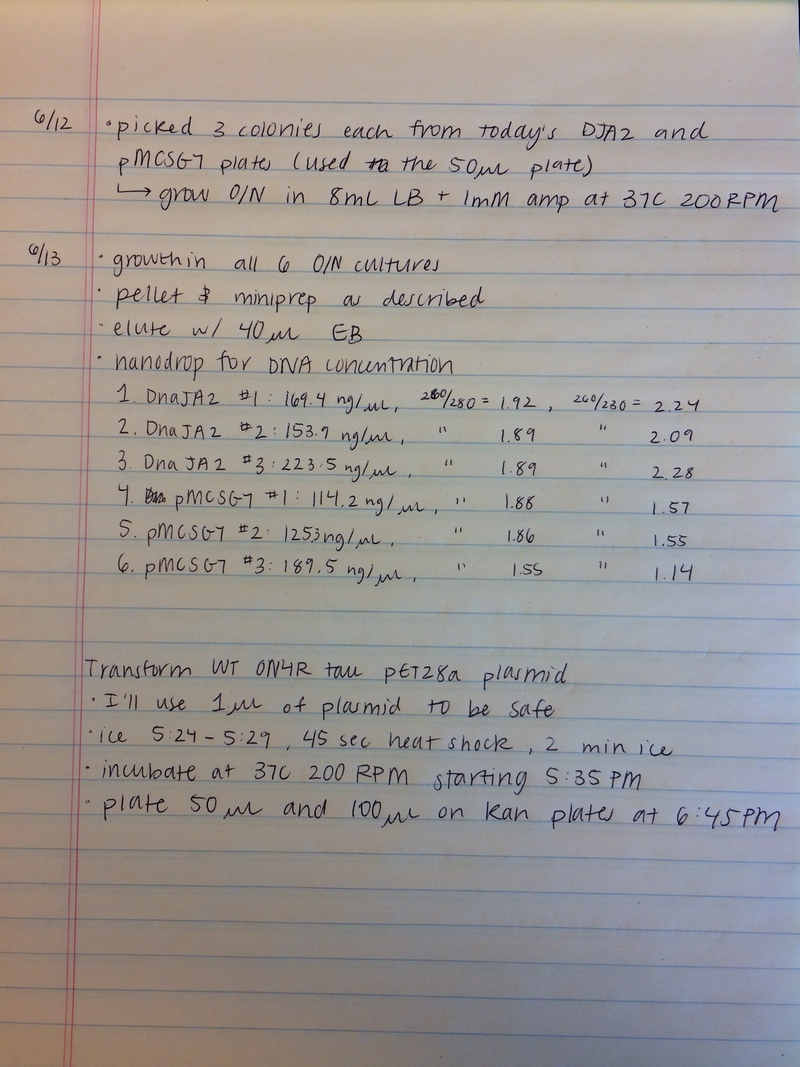 6/12 • picked 3 colonies each from today's DJA2 and
pMCSG7 plates (used the 50µL plate)
↳ grow O/N in 8mL LB + 1mM amp at 37C 200RPM
6/13 • growth in all 6 O/N cultures
• pellet & miniprep as described
• elute w/ 40µL EB
• nanodrop for DNA concentration
1. DnaJA2 #1: 169.4 ng/µL, 260/280 = 1.92, 260/230 = 2.24
2. DnaJA2 #2: 153.9 ng/µL, " 1.89 " 2.09
3. DnaJA2 #3: 223.5 ng/µL, " 1.89 " 2.28
4. pMCSG7 #1: 114.2 ng/µL, " 1.88 " 1.57
5. pMCSG7 #2: 125.3 ng/µL, " 1.86 " 1.55
6. pMCSG7 #3: 189.5 ng/µL, " 1.55 " 1.14
Transform WT 0N4R tau pET28a plasmid
• I'll use 1µL of plasmid to be safe
• ice 5:24 - 5:29, 45 sec heat shock, 2 min ice
• incubate at 37C 200 RPM starting 5:35 PM
• plate 50µL and 100µL on Kan plates at 6:45PM